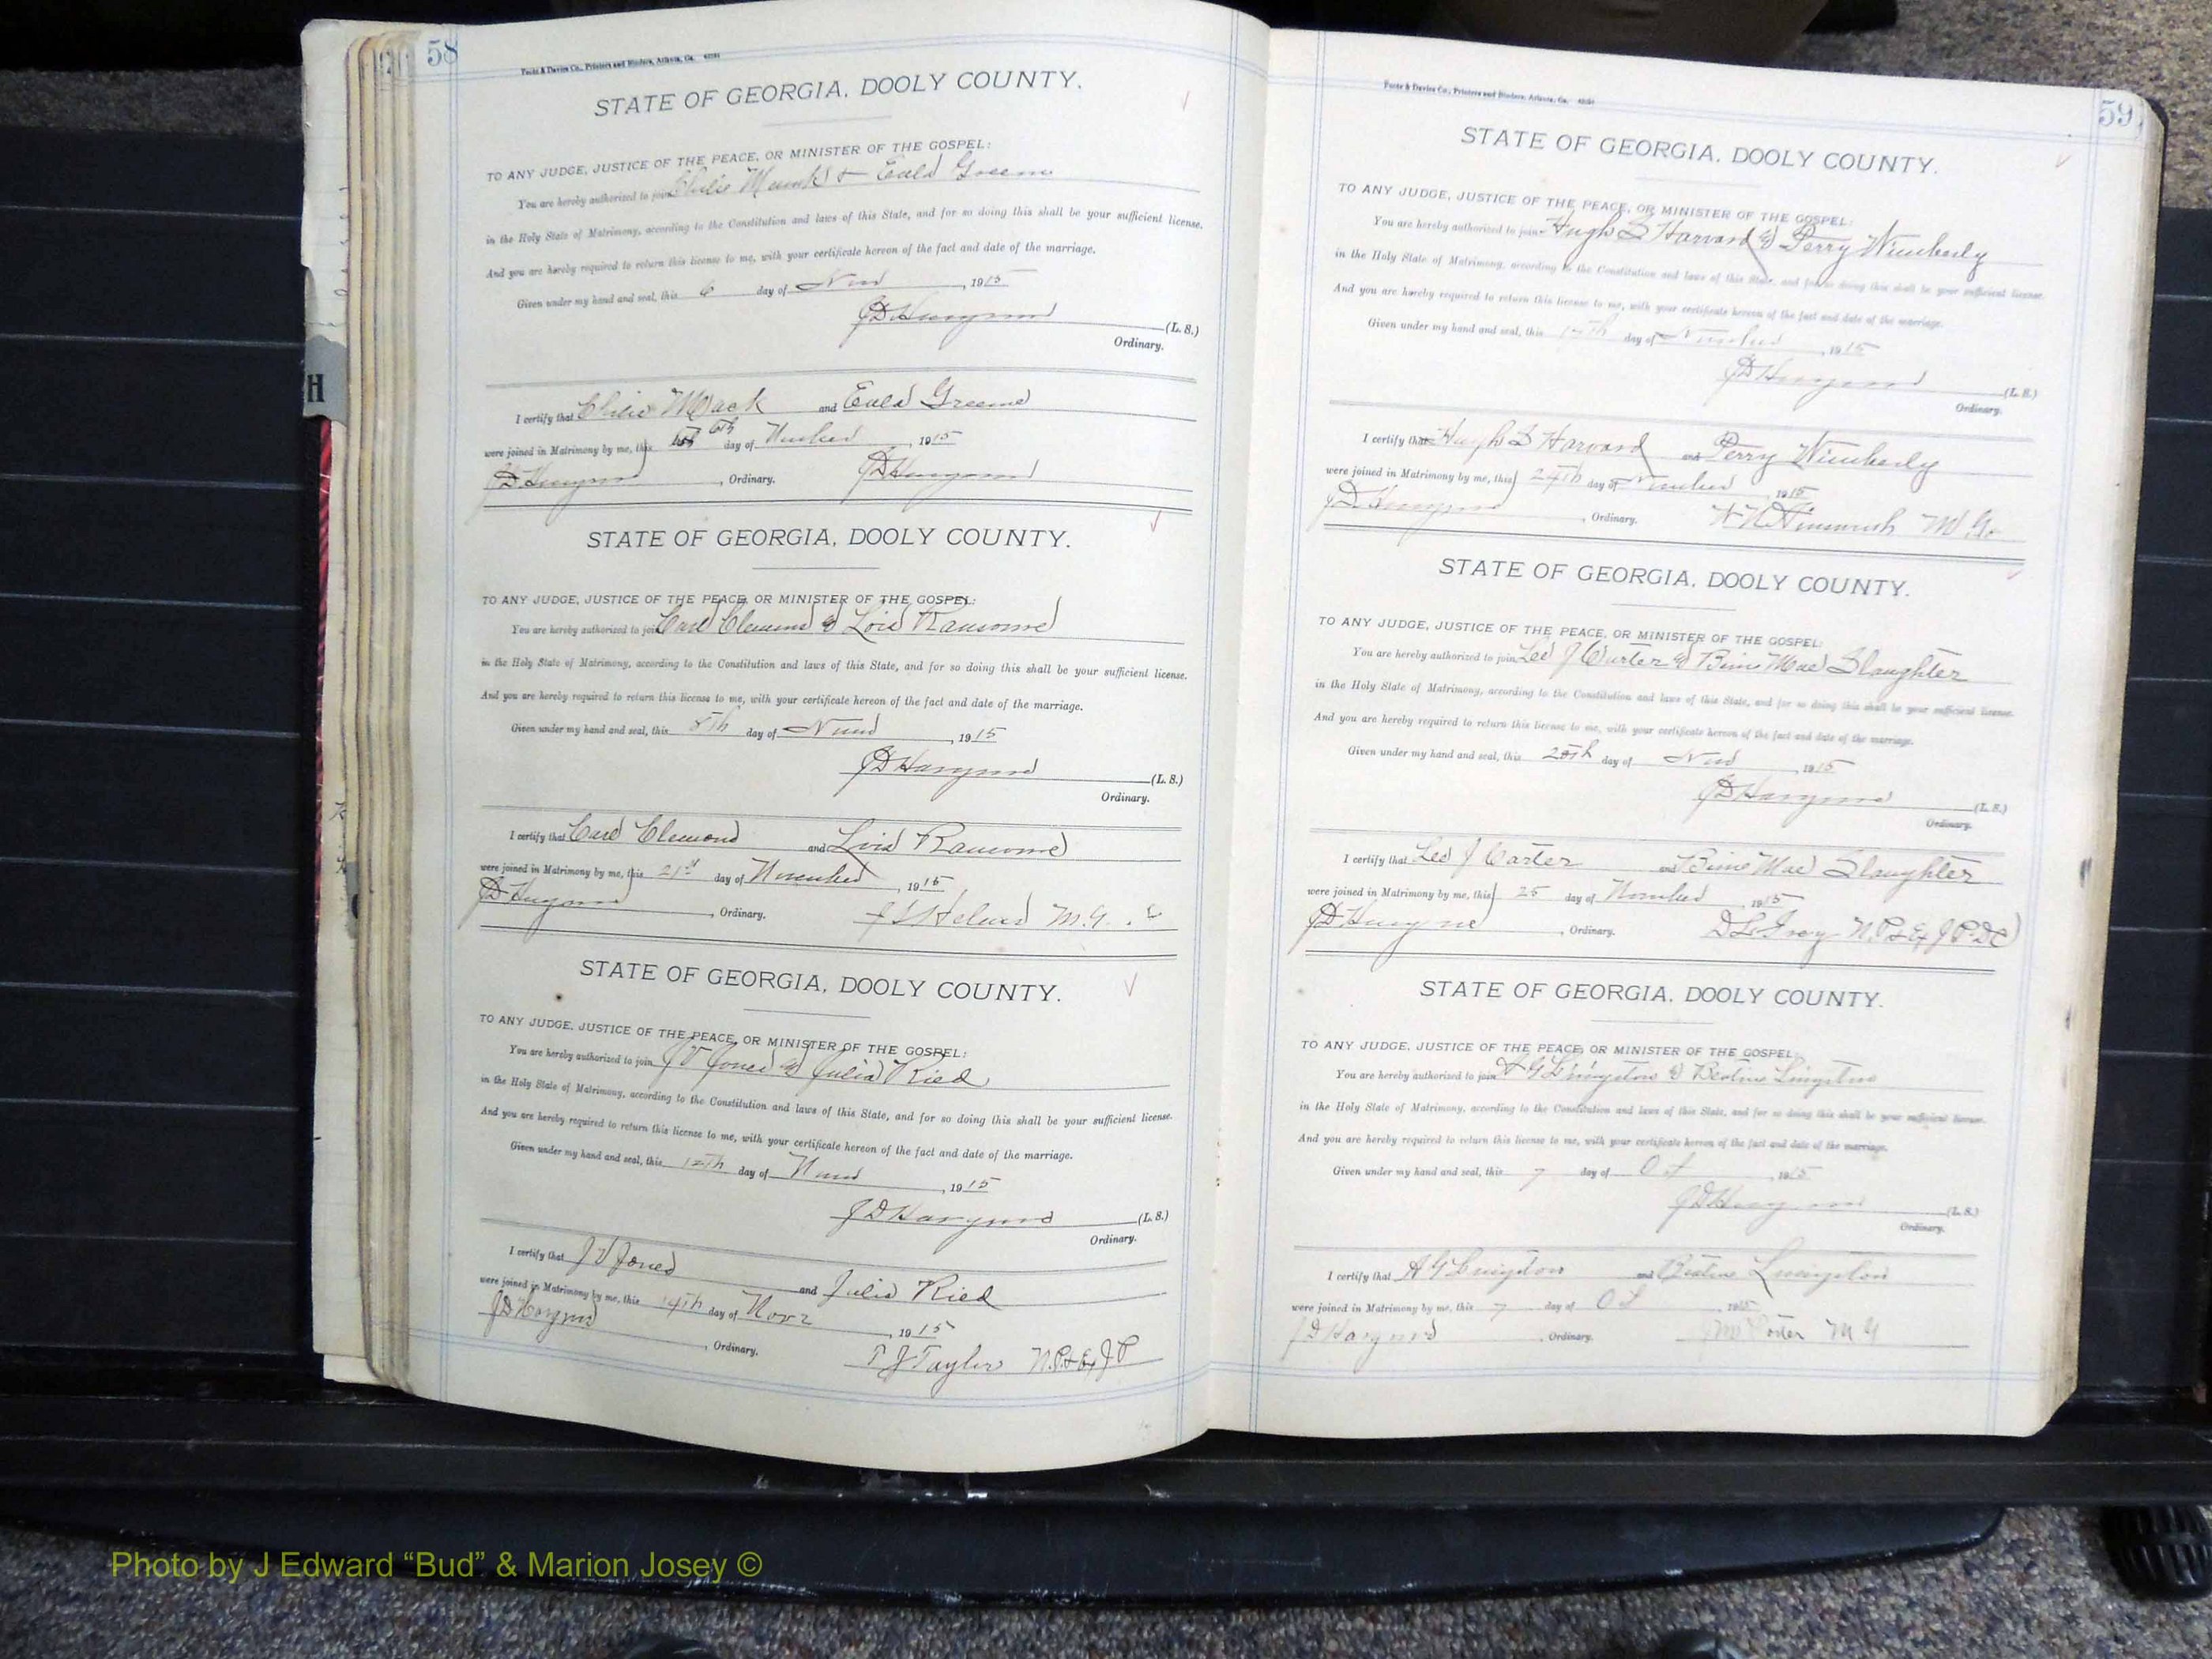 58
Foote & Davies Co., Printers and Binders, Atlanta, Ga.
STATE OF GEORGIA, DOOLY COUNTY.
TO ANY JUDGE, JUSTICE OF THE PEACE, OR MINISTER OF THE GOSPEL:
You are hereby authorized to join & Eula Greene
in the Holy State of Matrimony, according to the Constitution and laws of this State, and for so doing this shall be your sufficient license.
And you are hereby required to return this license to me, with your certificate hereon of the fact and date of the marriage.
Given under my hand and seal, this 6 day of , 1915
(L. S.)
Ordinary.
I certify that Mack and Eula Greene
were joined in Matrimony by me, this 6th day of , 1915
, Ordinary.
STATE OF GEORGIA, DOOLY COUNTY.
TO ANY JUDGE, JUSTICE OF THE PEACE, OR MINISTER OF THE GOSPEL:
You are hereby authorized to join Carl & Lois Ransome
in the Holy State of Matrimony, according to the Constitution and laws of this State, and for so doing this shall be your sufficient license.
And you are hereby required to return this license to me, with your certificate hereon of the fact and date of the marriage.
Given under my hand and seal, this 8th day of , 1915
(L. S.)
Ordinary.
I certify that Carl and Lois Ransome
were joined in Matrimony by me, this 21st day of November , 1915
, Ordinary. M.G.
STATE OF GEORGIA, DOOLY COUNTY.
TO ANY JUDGE, JUSTICE OF THE PEACE, OR MINISTER OF THE GOSPEL:
You are hereby authorized to join J V Jones & Julia Ried
in the Holy State of Matrimony, according to the Constitution and laws of this State, and for so doing this shall be your sufficient license.
And you are hereby required to return this license to me, with your certificate hereon of the fact and date of the marriage.
Given under my hand and seal, this 12th day of , 1915
(L. S.)
Ordinary.
I certify that J V Jones and Julia Ried
were joined in Matrimony by me, this 14th day of , 1915
, Ordinary. T J Taylor N.P. & Ex J P
59
Foote & Davies Co., Printers and Binders, Atlanta, Ga.
STATE OF GEORGIA, DOOLY COUNTY.
TO ANY JUDGE, JUSTICE OF THE PEACE, OR MINISTER OF THE GOSPEL:
You are hereby authorized to join Hugh S Harvard & Perry Wimberly
in the Holy State of Matrimony, according to the Constitution and laws of this State, and for so doing this shall be your sufficient license.
And you are hereby required to return this license to me, with your certificate hereon of the fact and date of the marriage.
Given under my hand and seal, this day of , 1915
(L. S.)
Ordinary.
I certify that Hugh S Harvard and Perry Wimberly
were joined in Matrimony by me, this 24th day of , 1915
, Ordinary. M.G.
STATE OF GEORGIA, DOOLY COUNTY.
TO ANY JUDGE, JUSTICE OF THE PEACE, OR MINISTER OF THE GOSPEL:
You are hereby authorized to join Lee J Carter & Mae Slaughter
in the Holy State of Matrimony, according to the Constitution and laws of this State, and for so doing this shall be your sufficient license.
And you are hereby required to return this license to me, with your certificate hereon of the fact and date of the marriage.
Given under my hand and seal, this day of , 1915
(L. S.)
Ordinary.
I certify that Lee J Carter and Mae Slaughter
were joined in Matrimony by me, this 25 day of , 1915
, Ordinary. N.P. & Ex J P DC
STATE OF GEORGIA, DOOLY COUNTY.
TO ANY JUDGE, JUSTICE OF THE PEACE, OR MINISTER OF THE GOSPEL:
You are hereby authorized to join A G Livingston & Livingston
in the Holy State of Matrimony, according to the Constitution and laws of this State, and for so doing this shall be your sufficient license.
And you are hereby required to return this license to me, with your certificate hereon of the fact and date of the marriage.
Given under my hand and seal, this 7 day of , 1915
(L. S.)
Ordinary.
I certify that A G Livingston and Livingston
were joined in Matrimony by me, this 7 day of , 1915
, Ordinary. Porter M G
H
Photo by J Edward “Bud” & Marion Josey ©